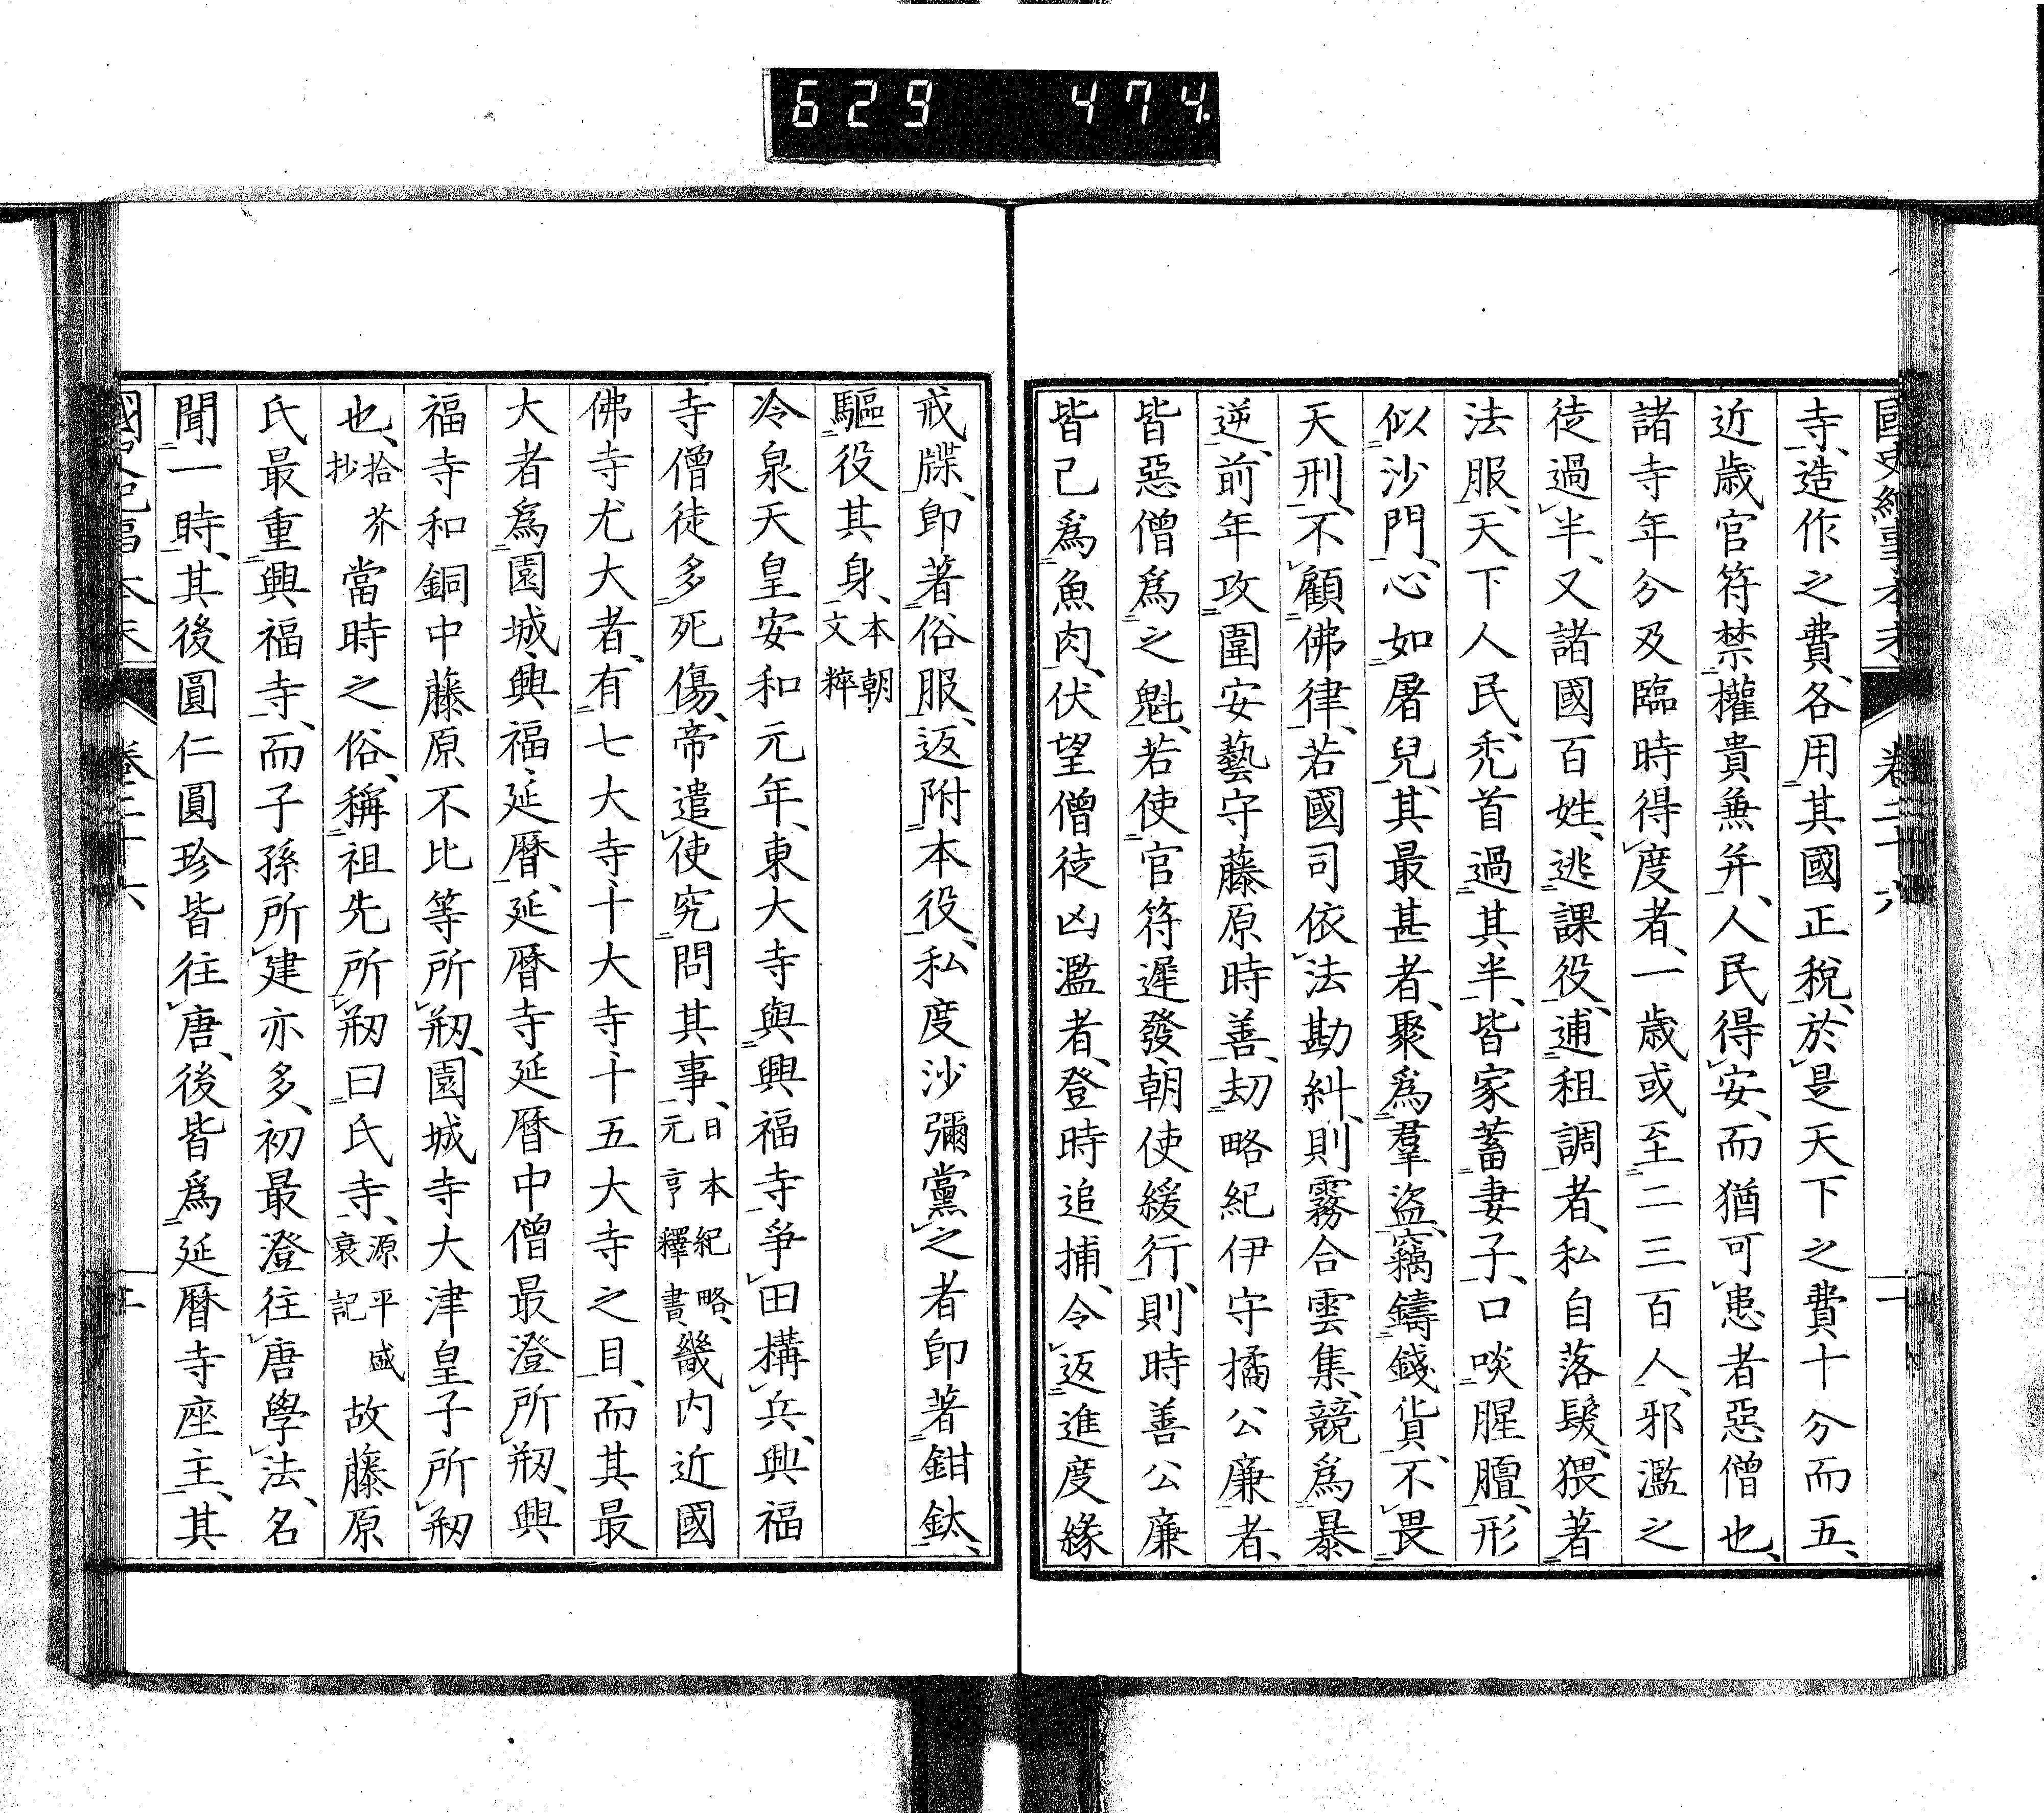 629 474
寺、造作之費、各用其國正稅、於是天下之費十分而五、
近歲官符禁權貴兼并、人民得安、而猶可患者惡僧也、
諸寺年分及臨時得度者、一歲或至二三百人、邪濫之
徒過半、又諸國百姓、逃課役、逋租調者、私自落髮、猥著
法服、天下人民、禿首過其半、皆家蓄妻子、口啖腥膻、形
似沙門、心如屠兒、其最甚者、聚爲羣盜、竊鑄錢貨、不畏
天刑、不顧佛律、若國司依法勘糾、則霧合雲集、競爲暴
逆、前年攻圍安藝守藤原時善、劫略紀伊守橘公廉者、
皆惡僧爲之魁、若使官符遲發、朝使緩行、則時善公廉
皆已爲魚肉、伏望僧徒凶濫者、登時追捕、令返進度緣
戒牒、卽著俗服、返附本役、私度沙彌黨之者卽著鉗釱、
驅役其身、本朝文粹
冷泉天皇安和元年、東大寺與興福寺爭田構兵、興福
寺僧徒多死傷、帝遣使究問其事、日本紀略、元亨釋書、畿内近國
佛寺尤大者、有七大寺十大寺十五大寺之目、而其最
大者爲園城、興福、延曆、延曆寺延曆中僧最澄所剏、興
福寺和銅中藤原不比等所剏、園城寺大津皇子所剏
也、拾芥抄當時之俗、稱祖先所剏曰氏寺、源平盛衰記故藤原
氏最重興福寺、而子孫所建亦多、初最澄往唐學法、名
聞一時、其後圓仁圓珍皆往唐、後皆爲延曆寺座主、其